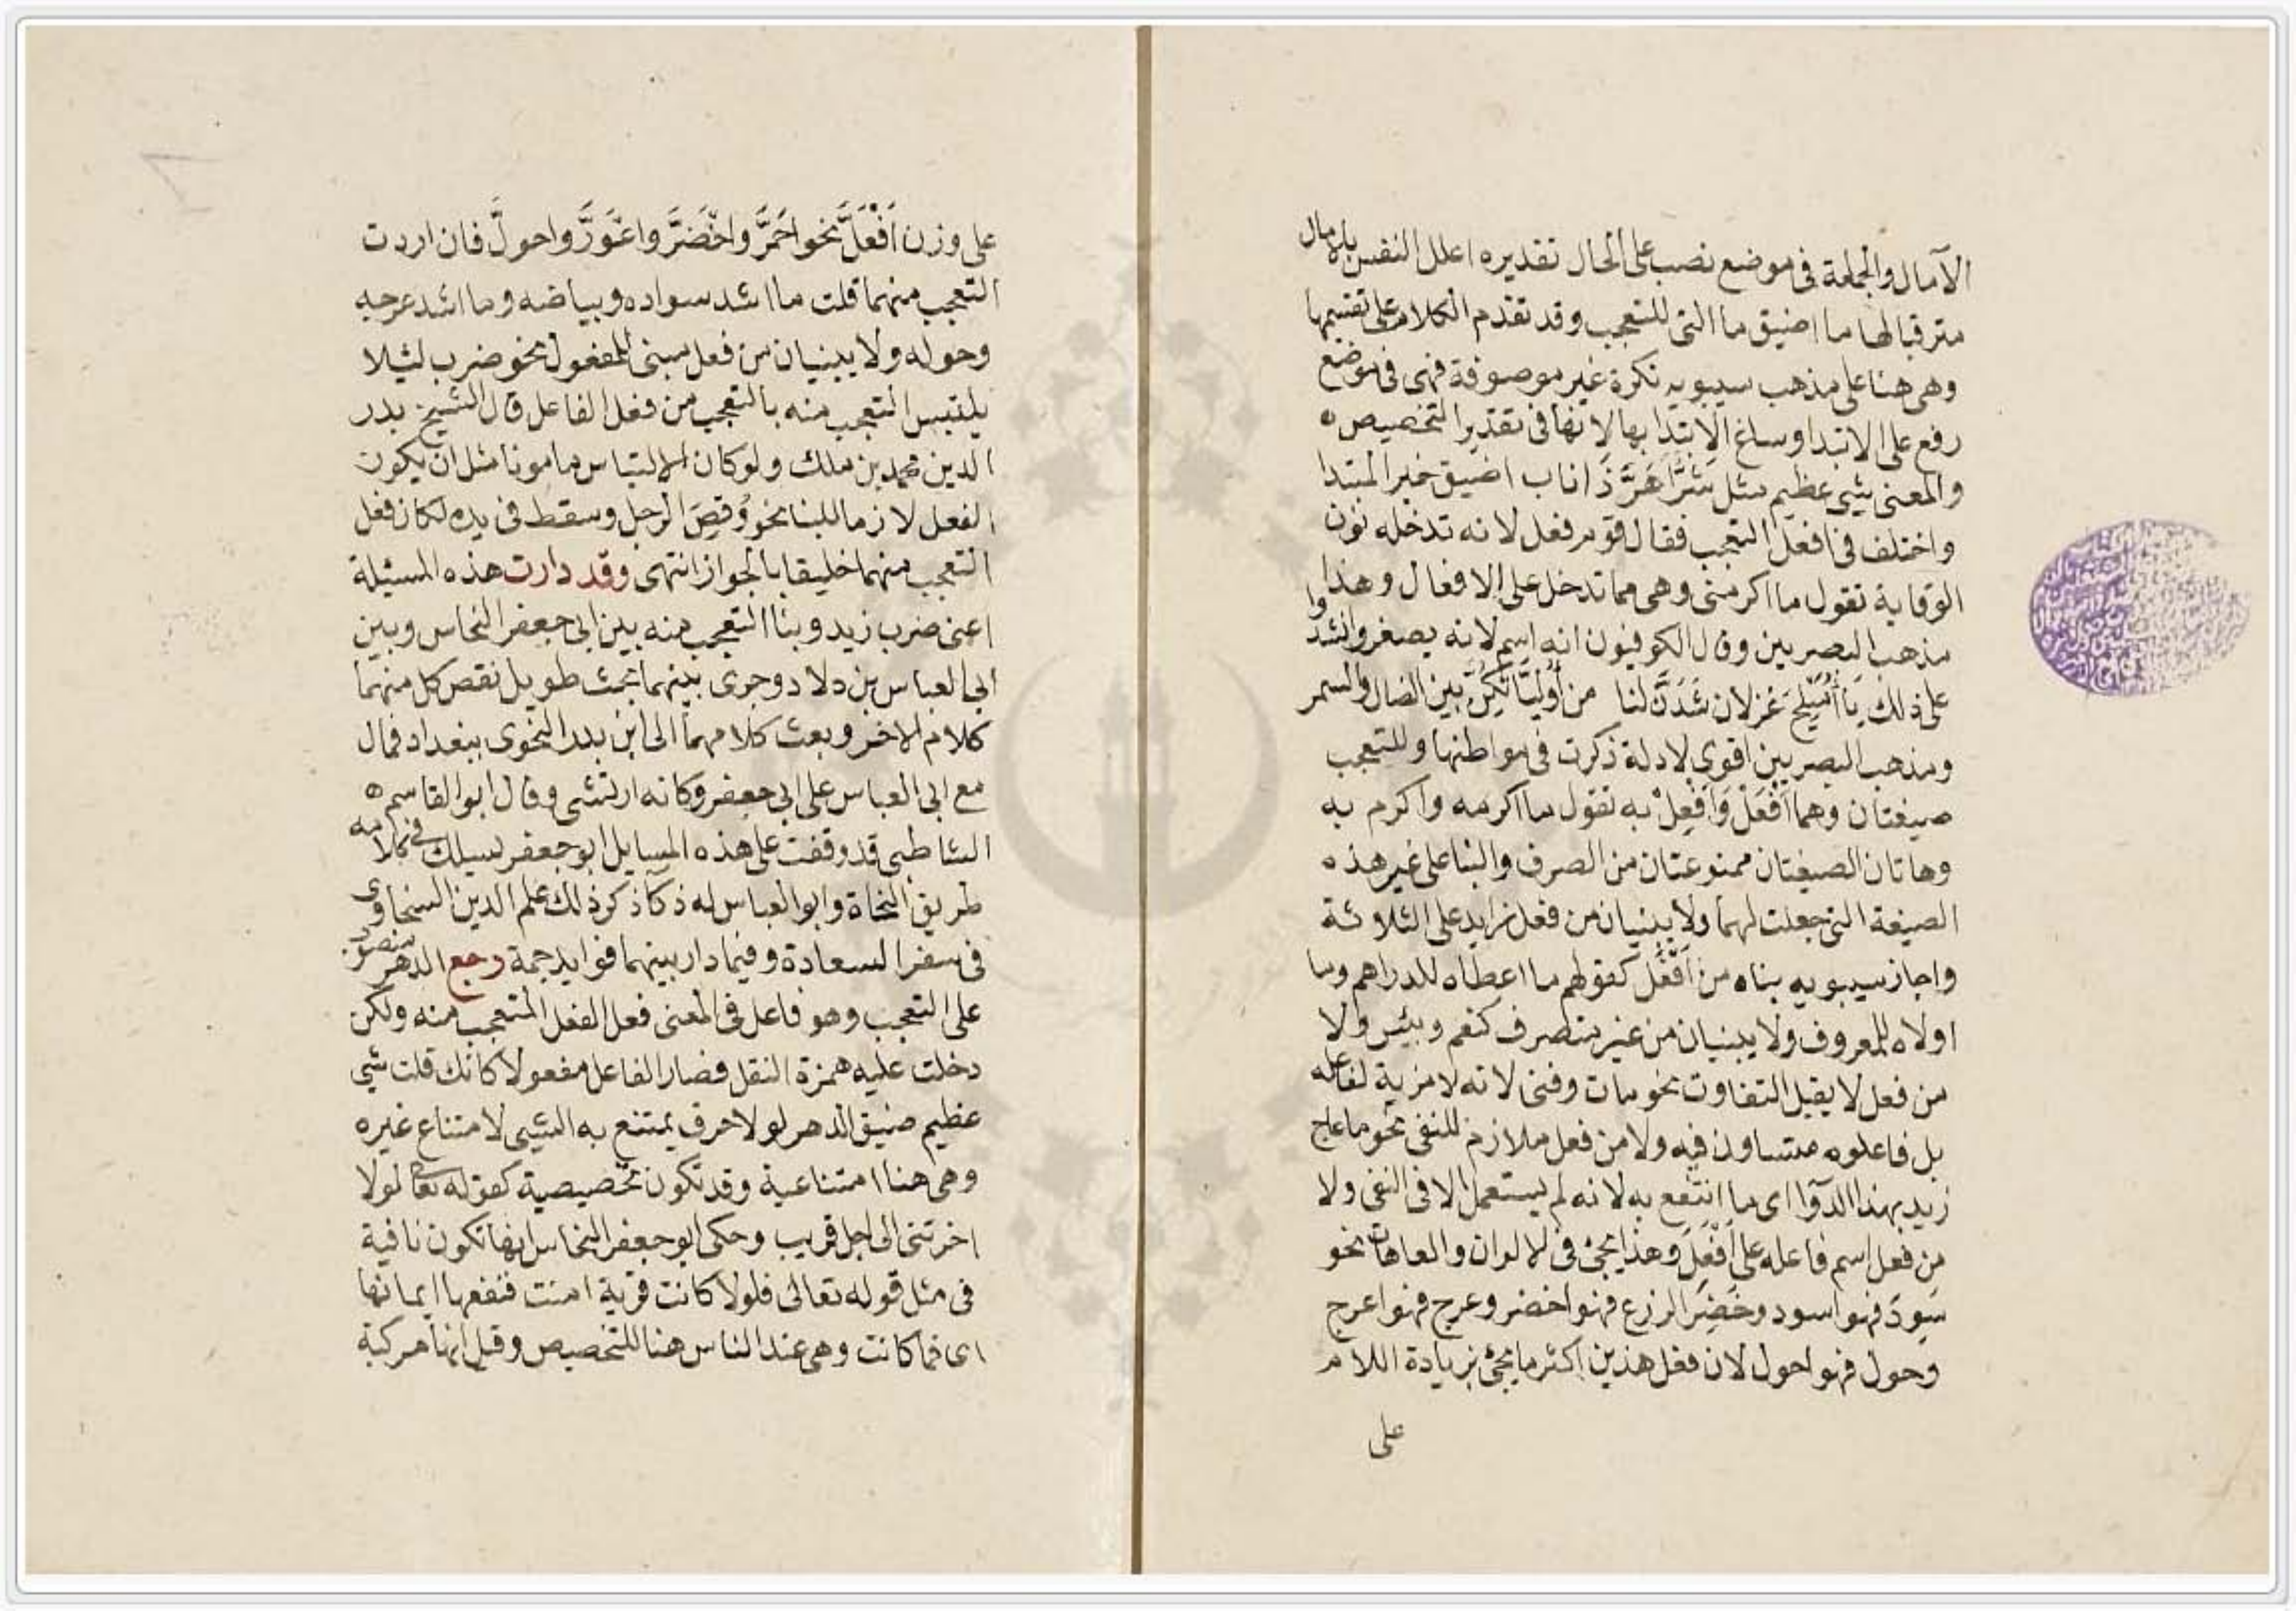 الآمال والجملة في موضع نصب على الحال تقديره اعلل النفس بالامال
مترقبا لها ما اضيق ما التي للتعجب وقد تقدم الكلام على تقسيمها
وهي هنا على مذهب سيبويه نكرة غير موصوفة فهى في موضع
رفع على الابتدا وساغ الابتدا بها لانها في تقدير التخصيص ه
والمعنى شيى عظيم مثل شَرٌّ اَهَرَّ ذَا ناب اضيق خبر المبتدا
واختلف في افعل التعجب فقال قوم فعل لانه تدخله نون
الوقاية تقول ما اكرمنى وهى مما تدخل على الافعال وهذا
مذهب البصريين وقال الكوفيون انه اسم لانه يصغر وانشدوا
على ذلك يَا اُمَيْلِحَ غزلان شَدَنَّ لنا من اُوليَّائِكُنَّ بين الضال والسمر
ومذهب البصريين اقوى لادلة ذكرت في مواطنها وللتعجب
صيغتان وهما اَفْعَلَ وَاَفْعِلْ به تقول ما اكرمه واكرم به
وهاتان الصيغتان ممنوعتان من الصرف والبنا على غير هذه
الصيغة التي جعلت لهما ولا يبنيان من فعل زايد على الثلاثة
واجاز سيبويه بناه من اَفْعَل كقولهم ما اعطاه للدراهم وما
اولاه للمعروف ولا يبنيان من غير متصرف كنعم وبئس ولا
من فعل لا يقبل التفاوت نحو مات وفنى لانه لا مزية لفاعله
بل فاعلوه متساوون فيه ولا من فعل ملازم للنفى نحو ما عاج
زيد بهذا الدوآ اى ما انتفع به لانه لم يستعمل الا في النفى ولا
من فعل اسم فاعله على اَفْعَلَ وهذا يجئ في الالوان والعاهات نحو
سَوِدَ فهو اسود وخَضِرَ الزرع فهو اخضر وعرج فهو اعرج
وحول فهو احول لان فعل هذين اكثر ما يجئ بزيادة اللام
على
على وزن اَفْعَلَّ نحو احمَرَّ واخْضَرَّ واعْوَرَّ واحولَّ فان اردت
التعجب منهما قلت ما اشد سواده وبياضه وما اشد عرجه
وحوله ولا يبنيان من فعل مبنى للمفعول نحو ضرب لئيلا
يلتبس التعجب منه بالتعجب من فعل الفاعل قال الشيخ بدر
الدين محمد بن ملك ولو كان الالتباس مامونا مثل ان يكون
الفعل لازما للبنا نحو وُقِصَ الرجل وسقط في يده لكان فعل
التعجب منهما خليقا بالجواز انتهى وقد دارت هذه المسئلة
اعنى ضرب زيد وبنا التعجب منه بين ابى جعفر النحاس وبين
ابى العباس بن ولاد وجرى بينهما بحث طويل نقص كل منهما
كلام الاخر وبعث كلامهما الى ابن بدر النحوى ببغداد فمال
مع ابى العباس على ابى جعفر وكانه ارتشى وقال ابو القاسم ه
الشاطبى قد وقفت على هذه المسايل ابو جعفر يسيلك في كلامه
طريق النحاة وابو العباس له ذكآ ذكر ذلك علم الدين السخاوى
في سفر السعادة وفيما دار بينهما فوايد جمة رجع الدهر منصوب
على التعجب وهو فاعل في المعنى فعل الفعل المتعجب منه ولكن
دخلت عليه همزة النقل فصار الفاعل مفعولا كانك قلت شيى
عظيم ضيق الدهر لولا حرف يمتنع به الشيى لامتناع غيره
وهى هنا امتناعية وقد تكون تخصيصية كقوله تعالى لولا
اخرتنى الى اجل قريب وحكى ابو جعفر النحاس انها تكون نافية
في مثل قوله تعالى فلولا كانت قرية امنت فنفعها ايمانها
اى فما كانت وهى عند الناس هنا للتخصيص وقيل انها مركبة